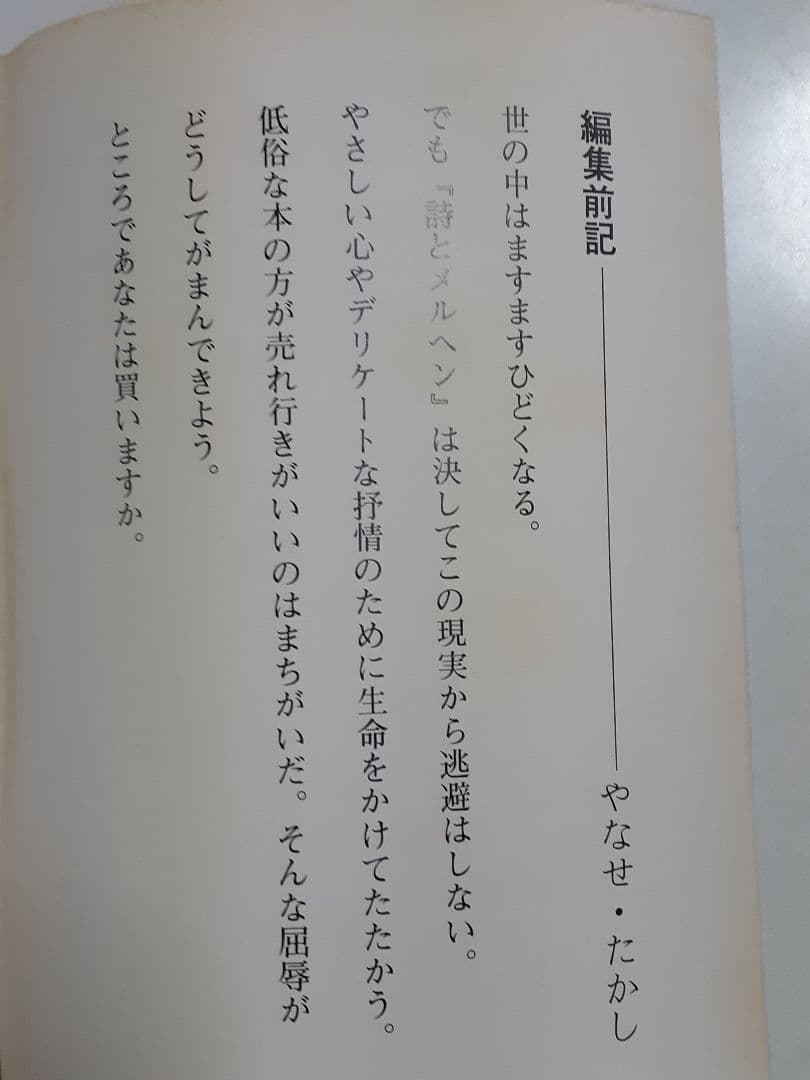 編集前記――――やなせ・たかし
世の中はますますひどくなる。
でも『詩とメルヘン』は決してこの現実から逃避はしない。
やさしい心やデリケートな抒情のために生命をかけてたたかう。
低俗な本の方が売れ行きがいいのはまちがいだ。そんな屈辱が
どうしてがまんできよう。
ところであなたは買いますか。